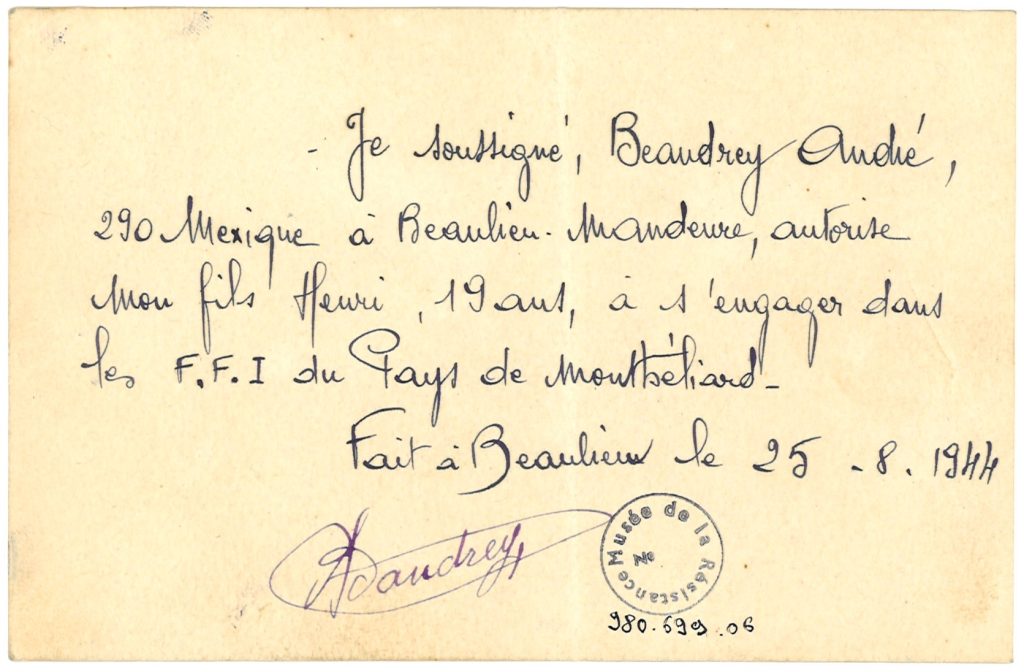 - Je soussigné, Beaudrey André,
290 Mexique à Beaulieu-Mandeure, autorise
mon fils Henri, 19 ans, à s'engager dans
les F.F.I du Pays de Montbéliard-
Fait à Beaulieu le 25 -8. 1944
ABeaudrey
Musée de la Résistance
N°
980.699.06